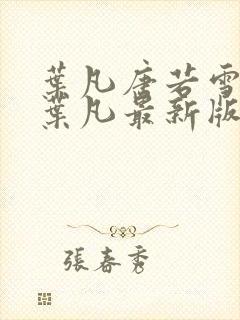 葉凡唐若雪
葉凡最新版
張春秀